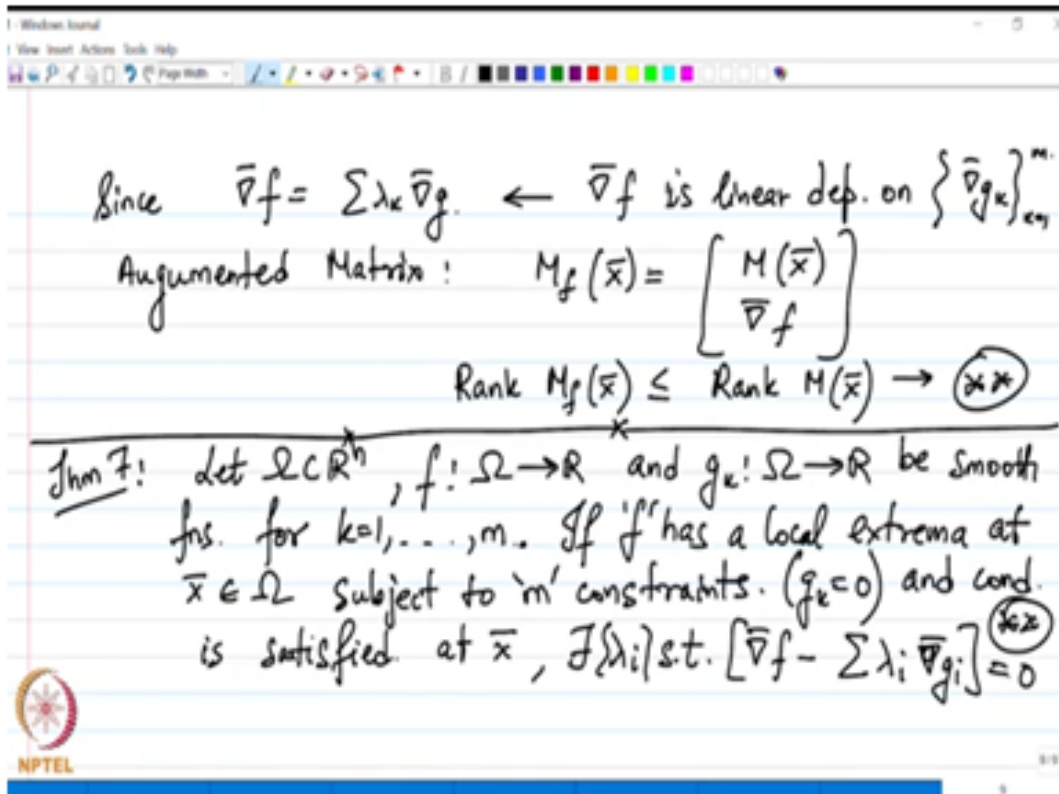 - Windows Journal
View Insert Actions Tools Help
Page Width
B I
Since ∇̄f = Σλₖ ∇̄g. ← ∇̄f is linear dep. on {∇̄gₖ}ᵐ
Augumented Matrix : M_f (x̄) = [ M(x̄)
∇̄f ]
Rank M_f(x̄) ≤ Rank M(x̄) → (**)
Thm 7: Let Ω⊂ℝⁿ, f: Ω→ℝ and gₖ: Ω→ℝ be smooth
fns. for k=1,...,m. If 'f' has a local extrema at
x̄ ∈ Ω subject to 'm' constraints. (gₖ=0) and cond. (**)
is satisfied at x̄, ∃{λᵢ} s.t. [∇̄f - Σλᵢ ∇̄gᵢ] = 0
NPTEL
9